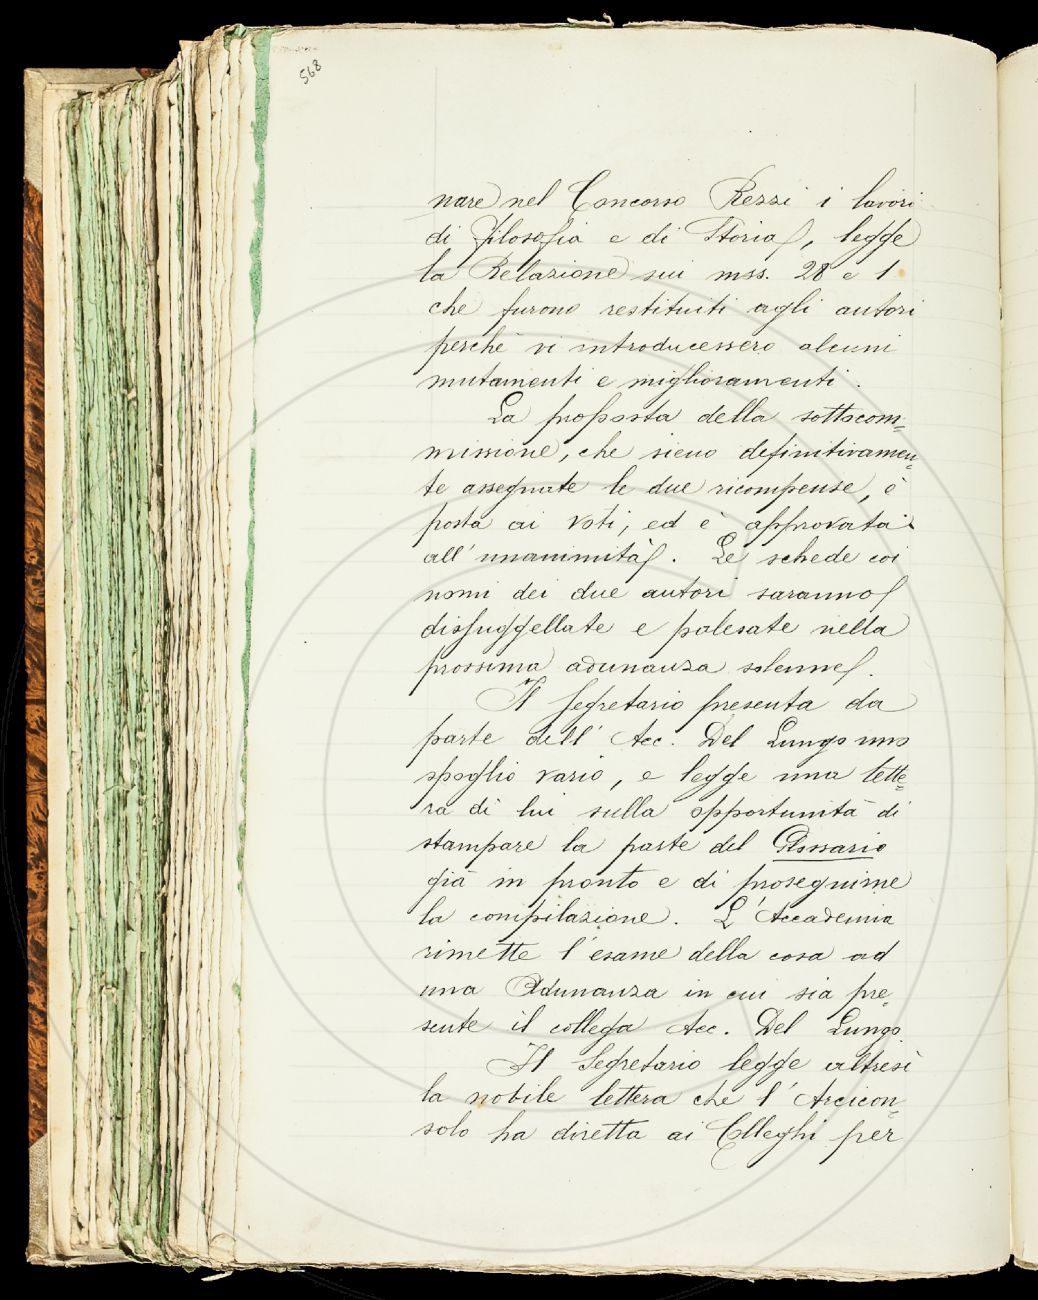 568
nare nel Concorso Rezzi i lavori
di Filosofia e di Storia, legge
la Relazione sui mss. 28 e 1
che furono restituiti agli autori
perchè vi introducessero alcuni
mutamenti e miglioramenti.
La proposta della sottocom=
missione, che sieno definitivamen=
te assegnate le due ricompense, è
posta ai voti, ed è approvata
all'unanimità. Le schede coi
nomi dei due autori saranno
dissuggellate e palesate nella
prossima adunanza solenne.
Il Segretario presenta da
parte dell'Acc. Del Lungo uno
spoglio vario, e legge una lette=
ra di lui sulla opportunità di
stampare la parte del Glossario
già in pronto e di proseguirne
la compilazione. L'Accademia
rimette l'esame della cosa ad
una Adunanza in cui sia pre=
sente il collega Acc. Del Lungo.
Il Segretario legge altresì
la nobile lettera che l'Arcicon=
solo ha diretta ai Colleghi per